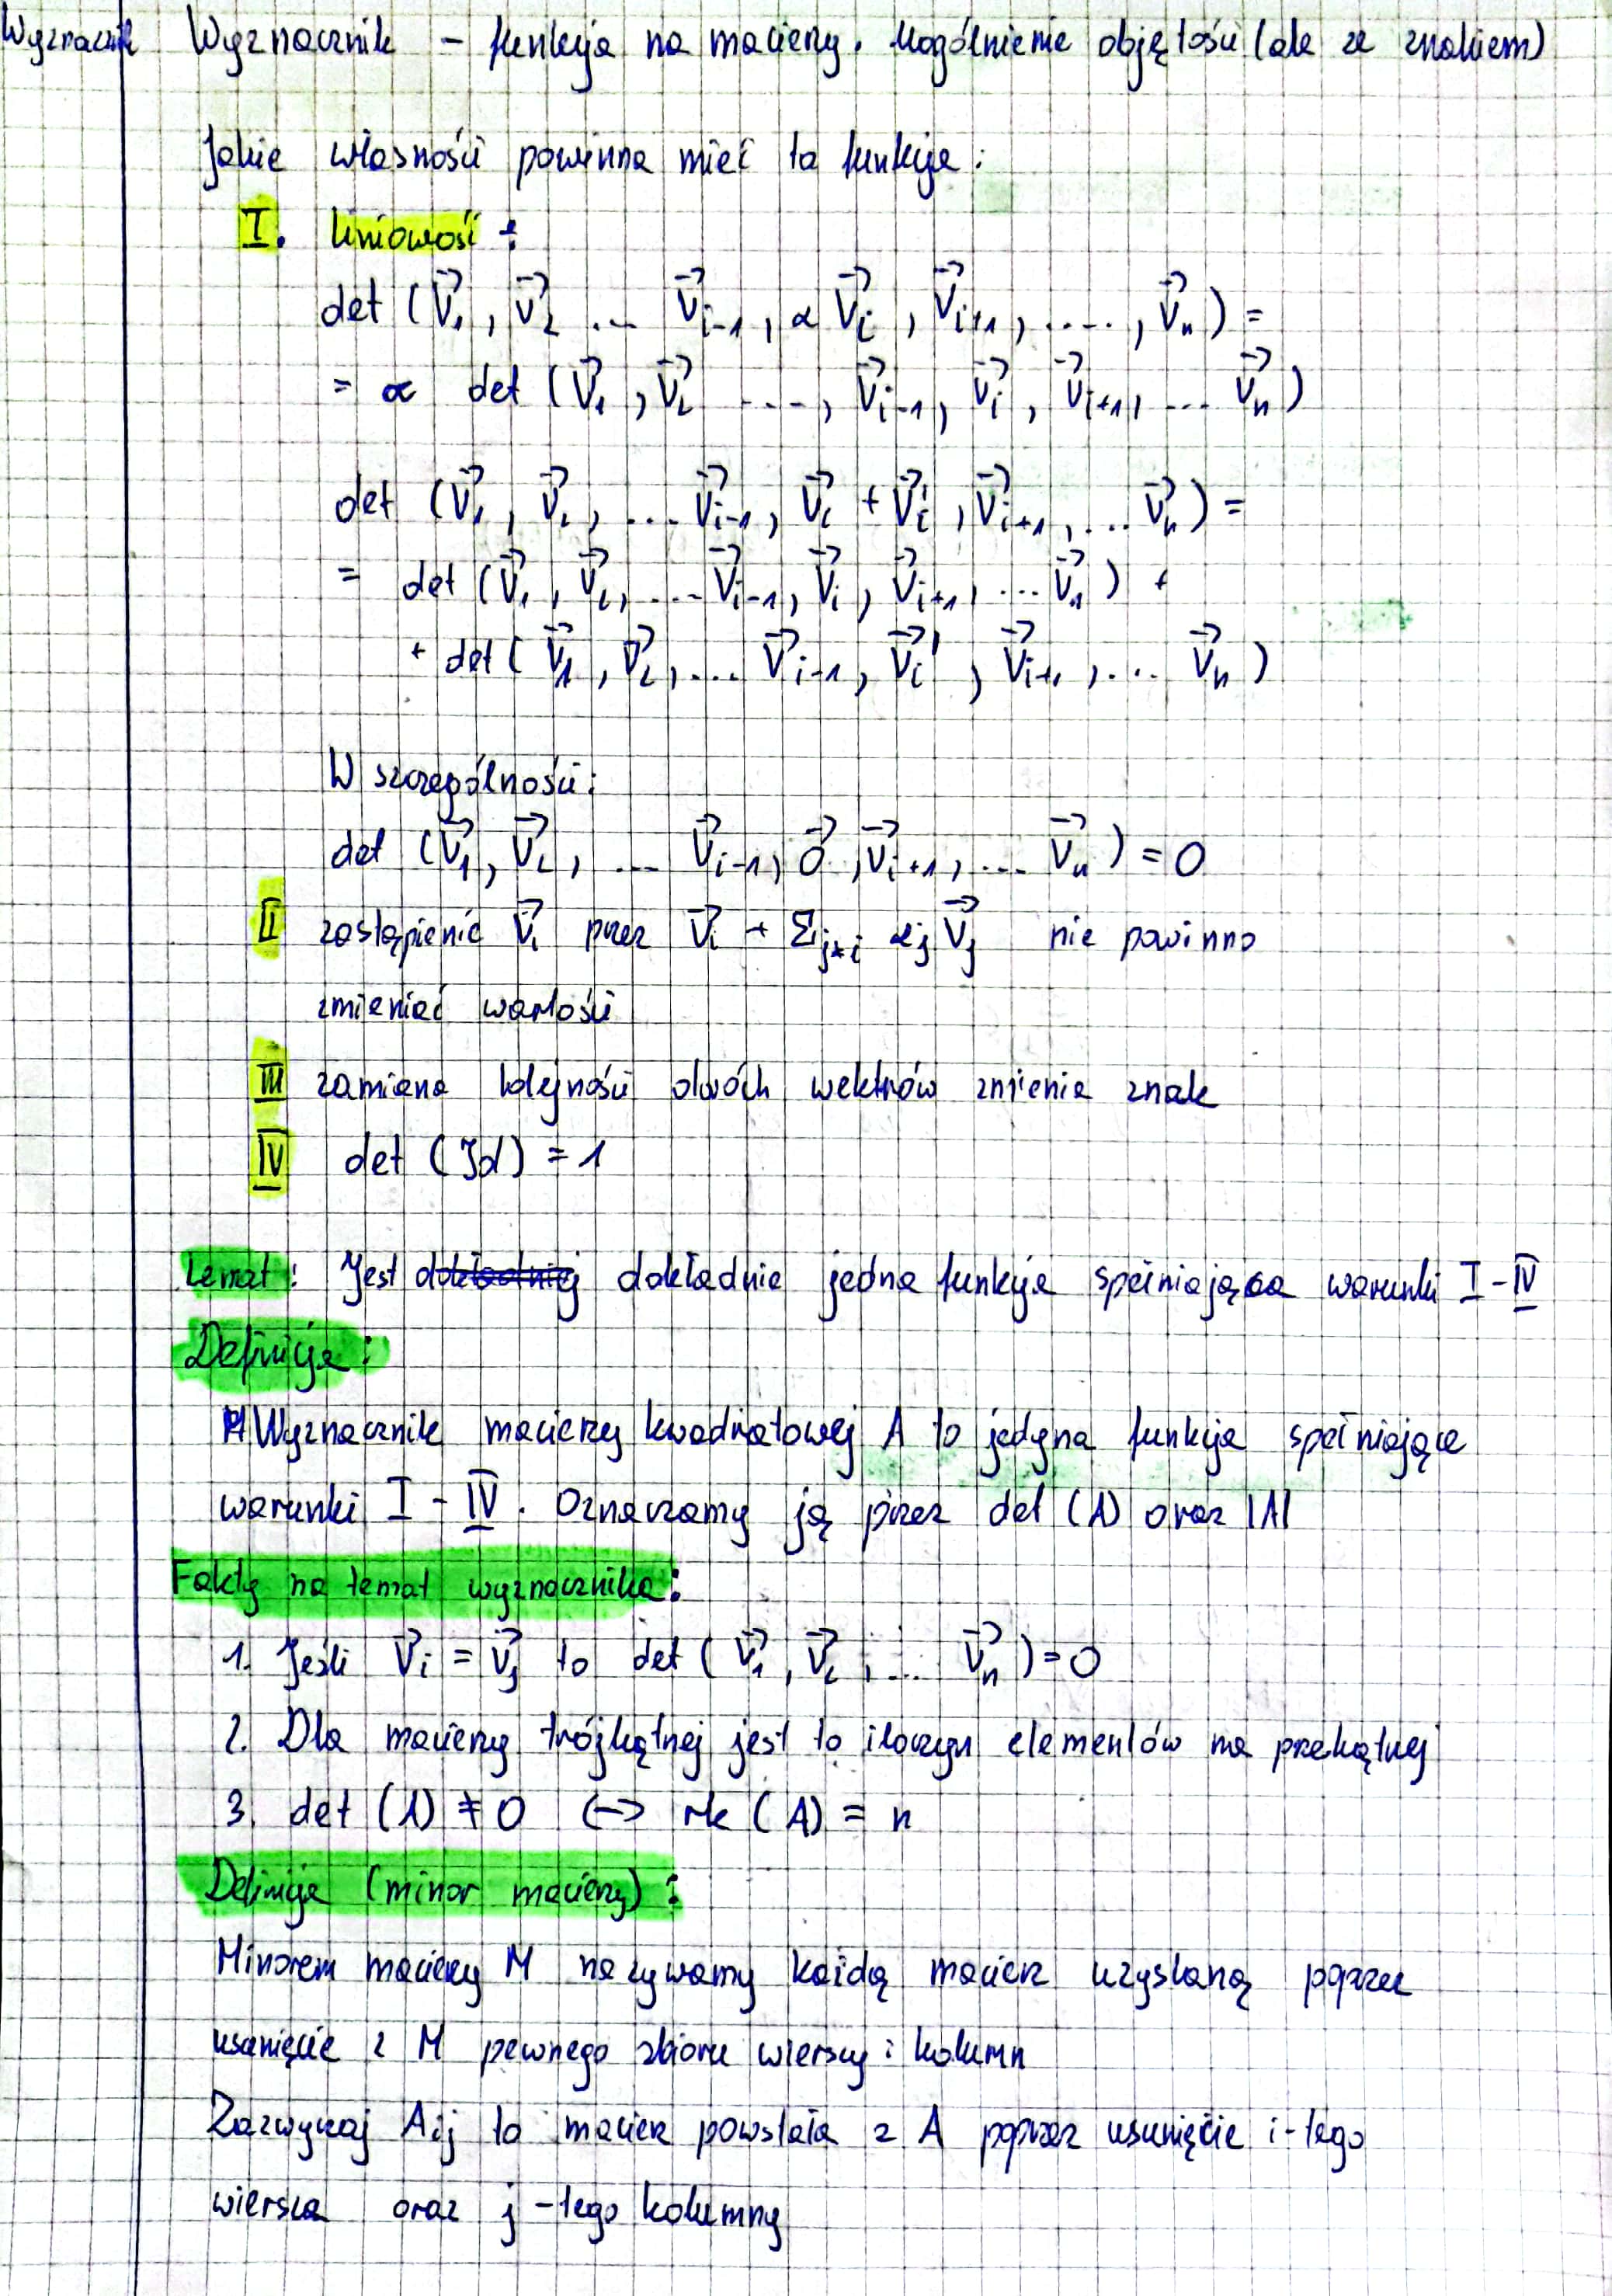 Wyznacznik Wyznacznik – funkcja na macierzy. Uogólnienie objętości (ale ze znakiem)
Jakie własności powinna mieć ta funkcja:
I. liniowość:
det (V⃗₁, V⃗₂ ... V⃗ᵢ₋₁, αV⃗ᵢ, V⃗ᵢ₊₁, ....., V⃗ₙ) =
= α det (V⃗₁, V⃗₂ ...., V⃗ᵢ₋₁, V⃗ᵢ, V⃗ᵢ₊₁, ... V⃗ₙ)
det (V⃗₁, V⃗₂, ... V⃗ᵢ₋₁, V⃗ᵢ + V⃗ᵢ', V⃗ᵢ₊₁, ... V⃗ₙ) =
= det (V⃗₁, V⃗₂, ... V⃗ᵢ₋₁, V⃗ᵢ, V⃗ᵢ₊₁, ... V⃗ₙ) +
+ det (V⃗₁, V⃗₂, ... V⃗ᵢ₋₁, V⃗ᵢ', V⃗ᵢ₊₁, ... V⃗ₙ)
W szczególności:
det (V⃗₁, V⃗₂, ... V⃗ᵢ₋₁, 0⃗, V⃗ᵢ₊₁, ... V⃗ₙ) = 0
II zastąpienie V⃗ᵢ przez V⃗ᵢ + Σ_{j≠i} αⱼ V⃗ⱼ nie powinno
zmieniać wartości
III zamiana kolejności dwóch wektrów zmienia znak
IV det (Id) = 1
Lemat: Jest dokładniej dokładnie jedna funkcja spełniająca warunki I – IV
Definicja:
Wyznacznik macierzy kwadratowej A to jedyna funkcja spełniająca
warunki I – IV. Oznaczamy ją przez det (A) oraz |A|
Fakty na temat wyznacznika:
1. Jeśli V⃗ᵢ = V⃗ⱼ to det (V⃗₁, V⃗₂, ... V⃗ₙ) = 0
2. Dla macierzy trójkątnej jest to iloczyn elementów na przekątnej
3. det (A) ≠ 0 ↔ rk (A) = n
Definicja (minor macierzy):
Minorem macierzy M nazywamy każdą macierz uzyskaną poprzez
usunięcie z M pewnego zbioru wierszy i kolumn
Zazwyczaj Aᵢⱼ to macierz powstała z A poprzez usunięcie i-tego
wiersza oraz j-tego kolumny